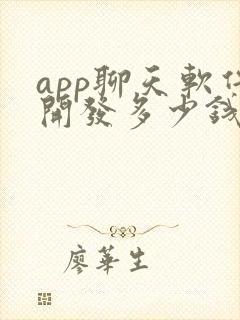 app聊天軟件
開發多少錢
廖華生